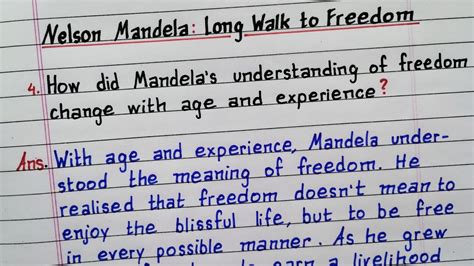 Nelson Mandela: Long Walk to Freedom
4. How did Mandela's understanding of freedom
change with age and experience?
Ans. With age and experience, Mandela under-
stood the meaning of freedom. He
realised that freedom doesn't mean to
enjoy the blissful life, but to be free
in every possible manner. As he grew
earn a livelihood